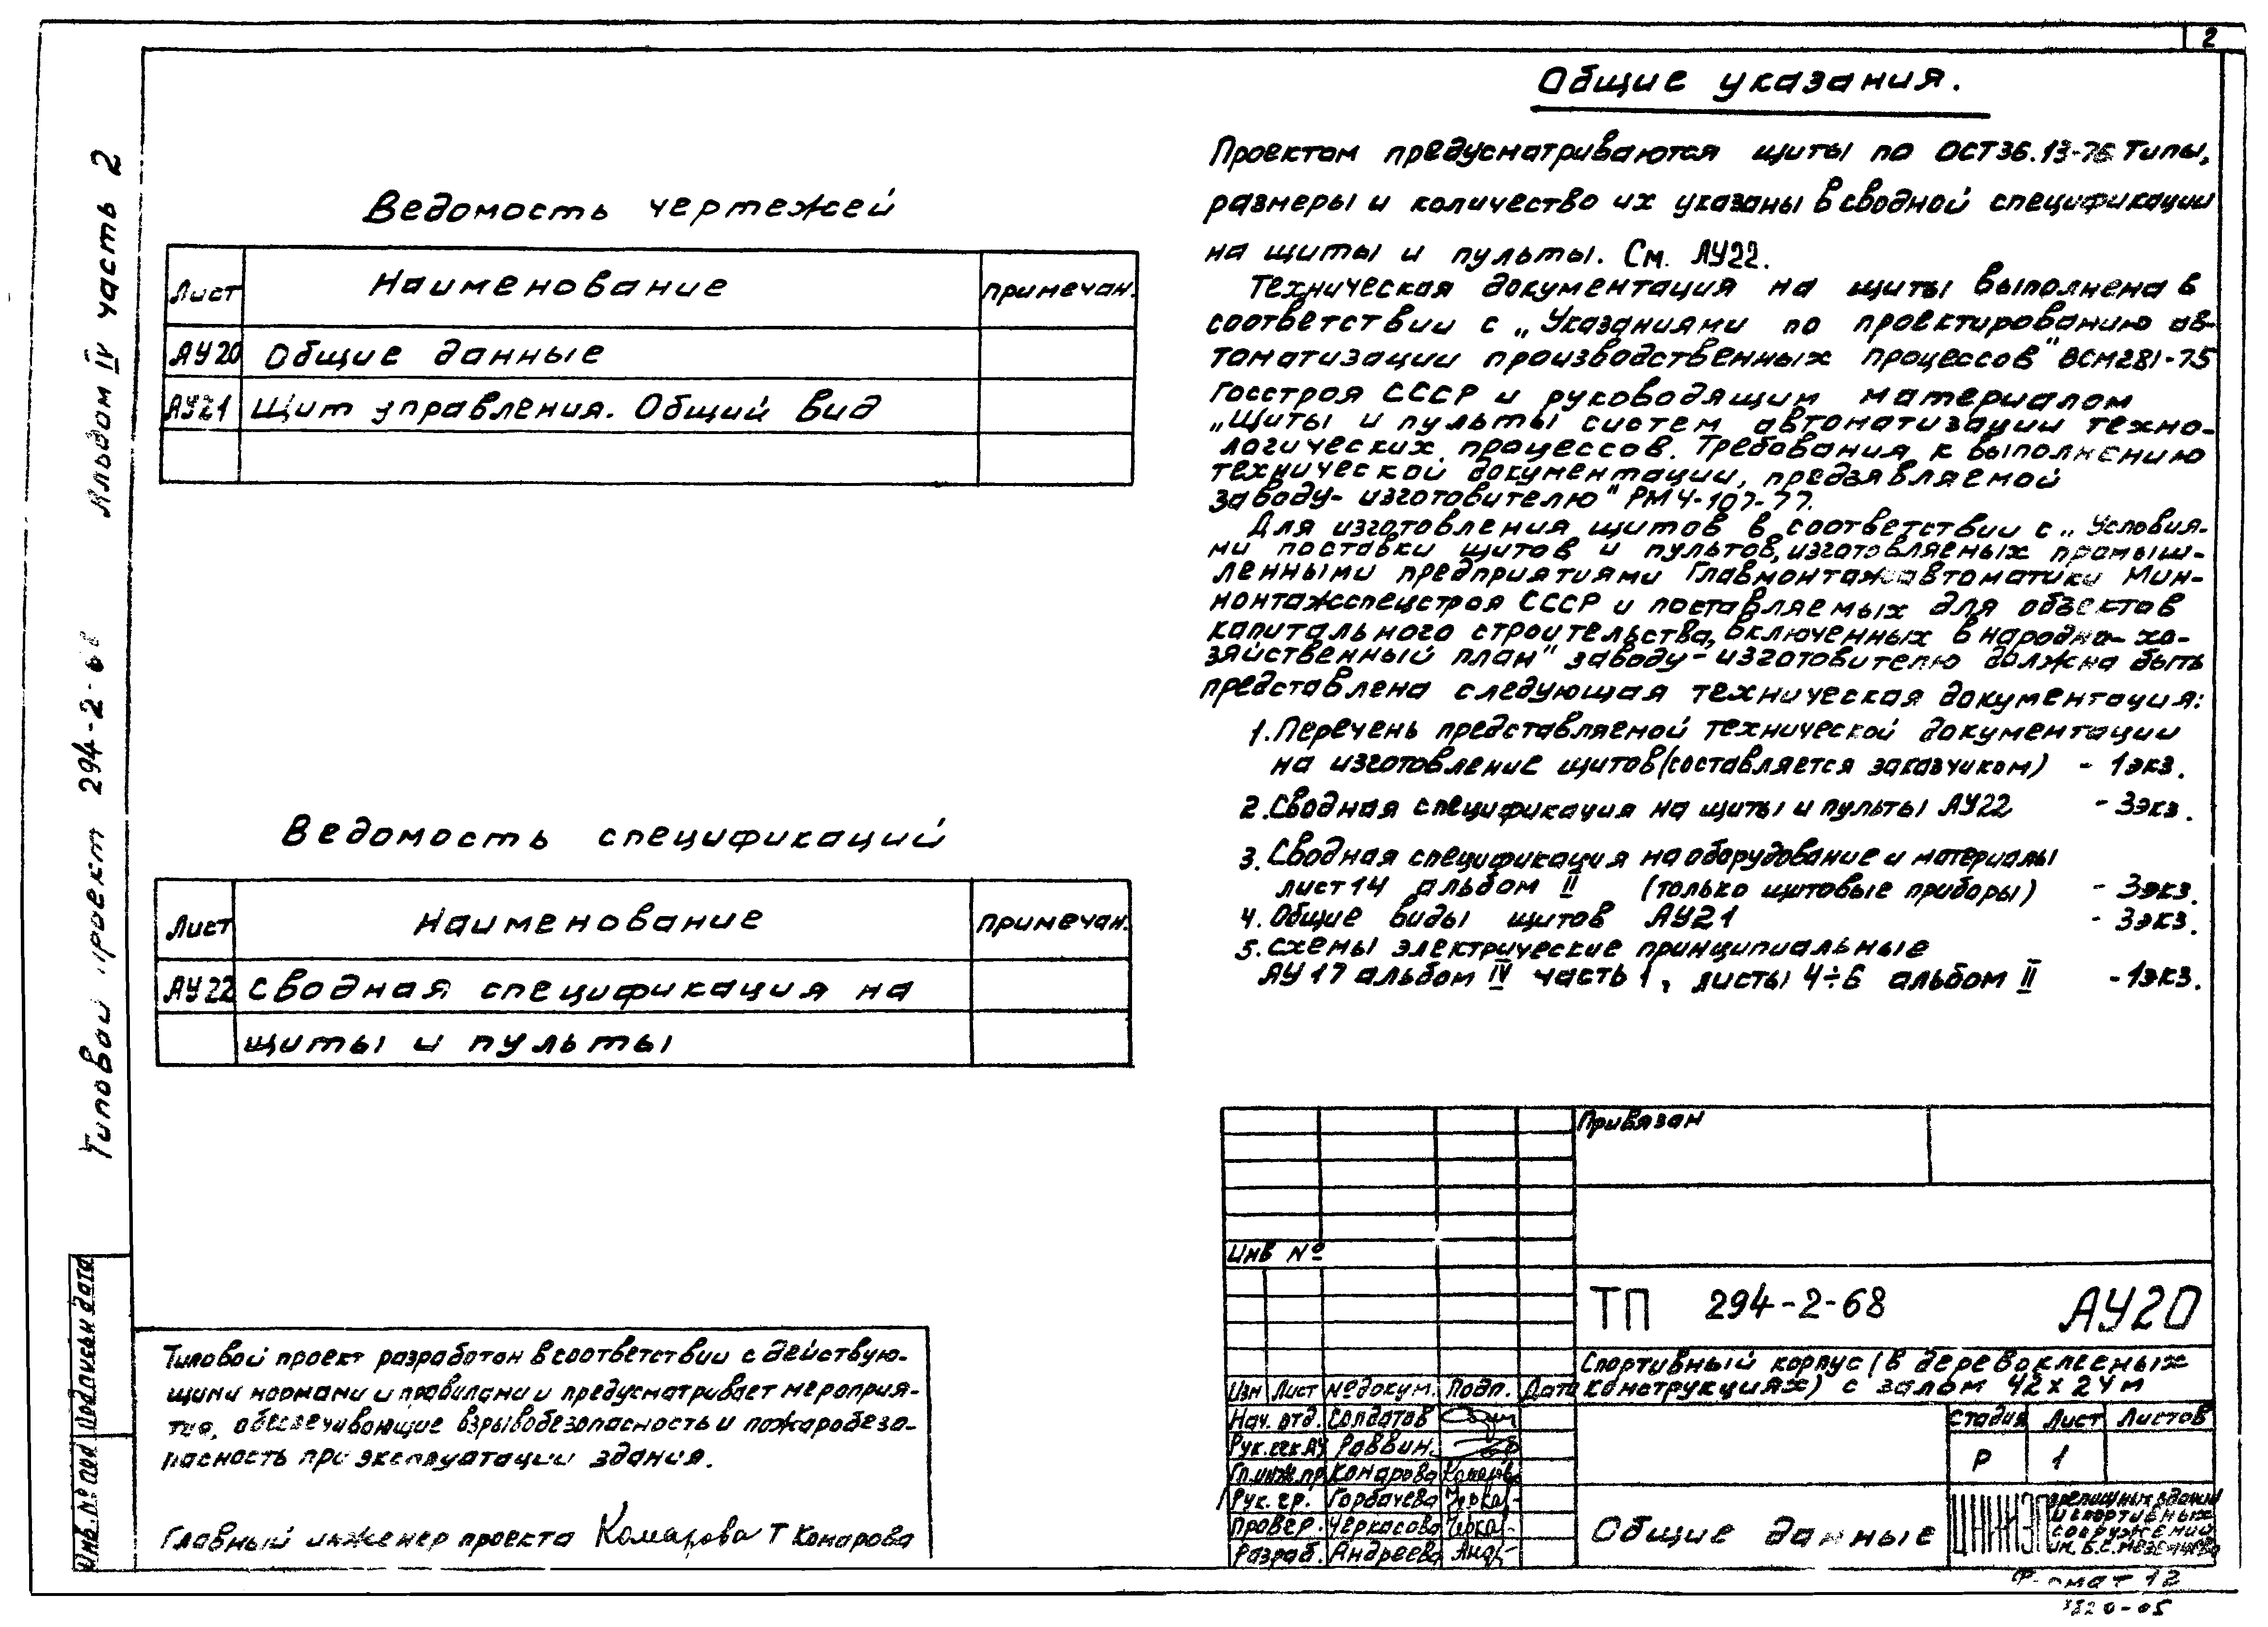 2
Альбом IV часть 2
Типовой проект 294-2-68
Ведомость чертежей
Лист Наименование примечан.
АУ20 Общие данные
АУ21 Щит управления. Общий вид
Ведомость спецификаций
Лист Наименование примечан.
АУ22 сводная спецификация на
щиты и пульты
Общие указания.
Проектом предусматриваются щиты по ОСТ36.13-76 Типы,
размеры и количество их указаны в сводной спецификации
на щиты и пульты. См. АУ22.
Техническая документация на щиты выполнена в
соответствии с „Указаниями по проектированию ав-
томатизации производственных процессов" ВСН281-75
Госстроя СССР и руководящим материалом
„Щиты и пульты систем автоматизации техно-
логических процессов. Требования к выполнению
технической документации, предъявляемой
заводу-изготовителю" РМ4-107-77.
Для изготовления щитов в соответствии с „Условия-
ми поставки щитов и пультов, изготовляемых промыш-
ленными предприятиями Главмонтажавтоматики Мин-
монтажспецстроя СССР и поставляемых для объектов
капитального строительства, включенных в народно-хо-
зяйственный план" заводу-изготовителю должна быть
представлена следующая техническая документация:
1. Перечень представляемой технической документации
на изготовление щитов (составляется заказчиком) - 1экз.
2. Сводная спецификация на щиты и пульты АУ22 - 3экз.
3. Сводная спецификация на оборудование и материалы
лист 14 альбом II (только щитовые приборы) - 3экз.
4. Общие виды щитов АУ21 - 3экз.
5. схемы электрические принципиальные
АУ17 альбом IV часть 1, листы 4÷6 альбом II - 1экз.
Типовой проект разработан в соответствии с действую-
щими нормами и правилами и предусматривает мероприя-
тия, обеспечивающие взрывобезопасность и пожаробезо-
пасность при эксплуатации здания.
Главный инженер проекта Комарова Т Комарова
Инв. № под Подпись и дата
Привязан
Инв №
ТП 294-2-68 АУ20
Спортивный корпус (в деревоклееных
конструкциях) с залом 42 х 24 м
Изм Лист № докум. Подп. Дата
Нач. отд. Солдатов
Рук. сек АУ Раввин.
Гл. инж. пр Комарова Комарова
Рук. гр. Горбачева
Провер. Черкасова
Разраб. Андреева
Стадия Лист Листов
Р 1
Общие данные
ЦНИИЭП зрелищных зданий
и спортивных
сооружений
им. Б.С. Мезенцева
Формат 12